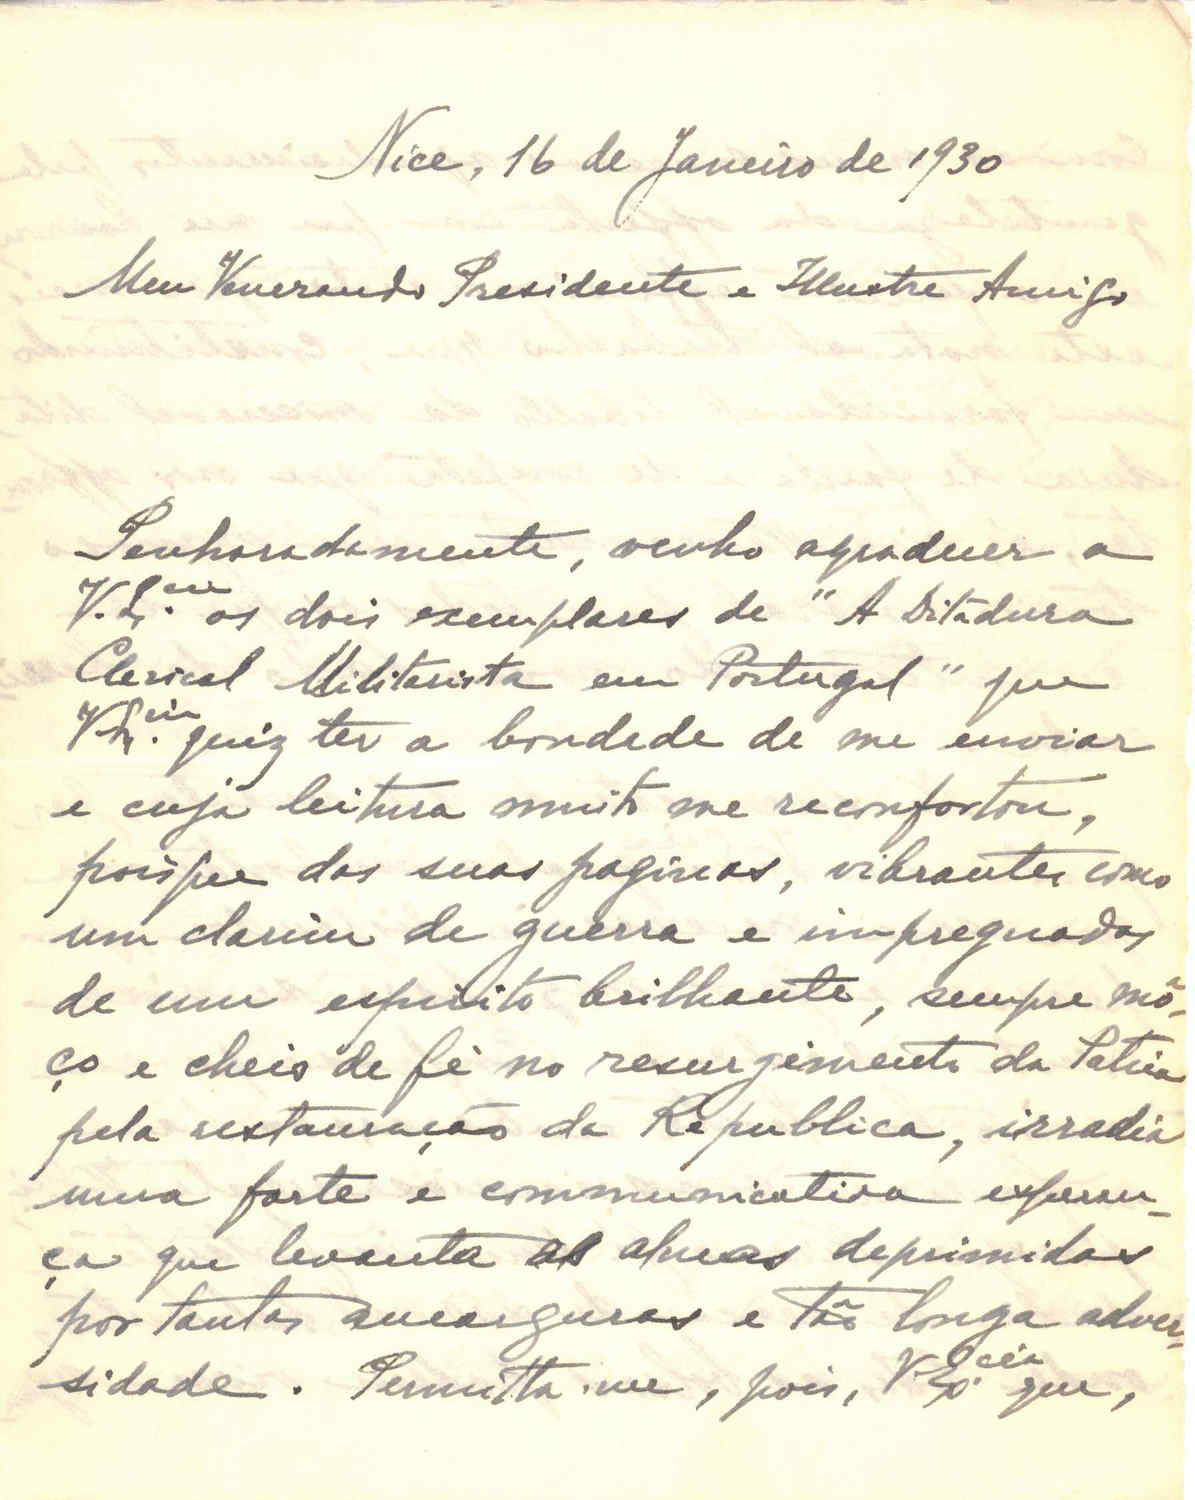 Nice, 16 de Janeiro de 1930
Meu Venerando Presidente e Illustre Amigo
Penhoradamente, venho agradecer a
V. Ex.cia os dois exemplares de "A Ditadura
Clerical Militarista em Portugal" que
V. Ex.cia quiz ter a bondade de me enviar
e cuja leitura muito me reconfortou,
porisque das suas paginas, vibrantes como
um clarim de guerra e impregnadas
de um espirito brilhante, sempre mô-
ço e cheio de fé no resurgimento da Patria
pela restauração da Republica, irradia
uma forte e communicativa esperan-
ça que levanta as almas deprimidas
por tantas amarguras e tão longa adver-
sidade. Permitta-me, pois, V. Ex.cia que,